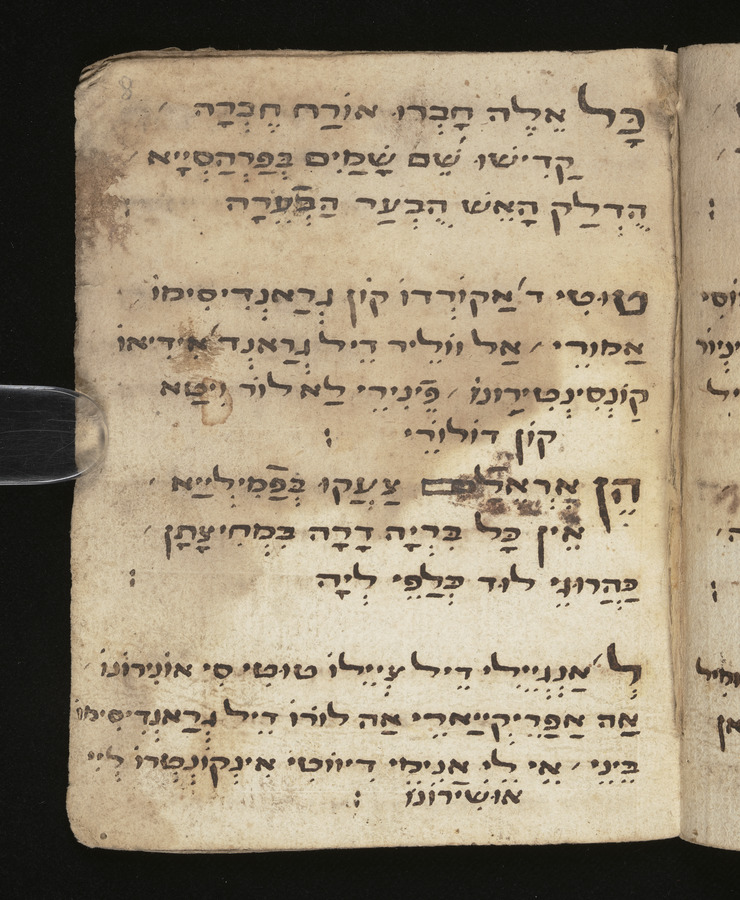 8
כָּל אֵלֶּה חָבְרוּ אוֹרַח חֶבְרָה
קַדִישׁוּ שֵׁם שָׁמַיִם בְּפַרְהַסְיָיא
הֻדְלַק הָאֵשׁ הֻבְעַר הַבְּעֵרָה :
טוּטִי ד'אַקוֹרְדוֹ קוֹן גְרַאנְדִיסִימוֹ
אַמוֹרֵי / אַל וֹולֵיר דֵיל גְרַאנְד'אִידִיאוֹ
קוֹנְסִינְטִירוֹנוֹ / פֵינִירֵי לַא לוֹר וִיטַא
קוֹן דוֹלוֹרֵי :
הֵן אֶרְאֶלִּם צָעֲקוּ בְּפַמִילְיַיא
אֵין כָּל בִּרְיָה דָרָה בִּמְחִיצָתָן
כַּהֲרוּגֵי לוּד כְּלַפֵּי לְיָה :
לְ'אַנְגֵיילִי דֵיל צְיֵילוֹ טוּטִי סִי אוּנִירוֹנוֹ
אַה אַפֵּרֵיקְיַיארֵי אַה לוֹרוֹ דֵיל גְרַאנְדִיסִימוֹ
בֵּינֵי / אֵי לֵי אַנִימֵי דִיווֹטֵי אִינְקוֹנְטְרוֹ לֵיי
אוּשִׁירוֹנוֹ :